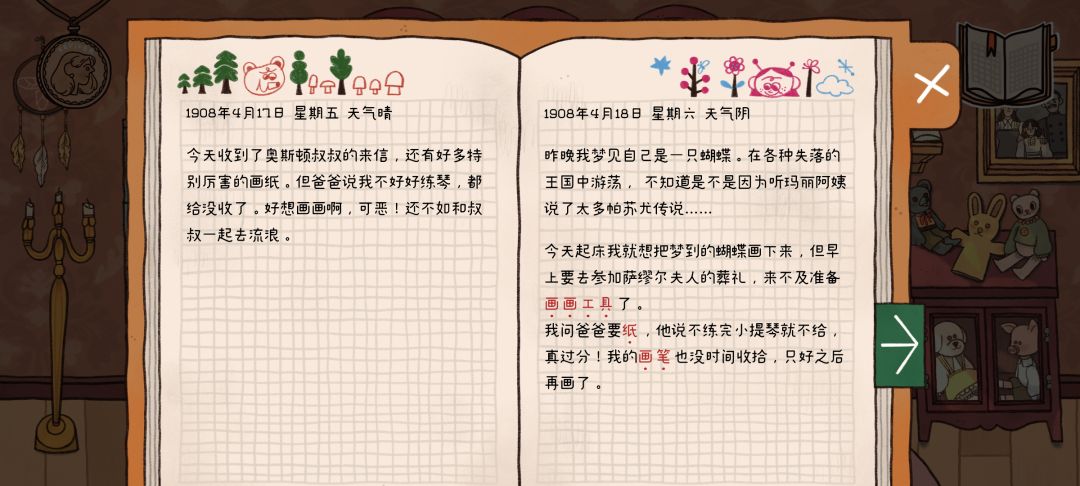 1908年4月17日 星期五 天气晴
今天收到了奥斯顿叔叔的来信，还有好多特
别厉害的画纸。但爸爸说我不好好练琴，都
给没收了。好想画画啊，可恶！还不如和叔
叔一起去流浪。
1908年4月18日 星期六 天气阴
昨晚我梦见自己是一只蝴蝶。在各种失落的
王国中游荡， 不知道是不是因为听玛丽阿姨
说了太多帕苏尤传说......
今天起床我就想把梦到的蝴蝶画下来，但早
上要去参加萨缪尔夫人的葬礼，来不及准备
画画工具了。
我问爸爸要纸，他说不练完小提琴就不给，
真过分！我的画笔也没时间收拾，只好之后
再画了。